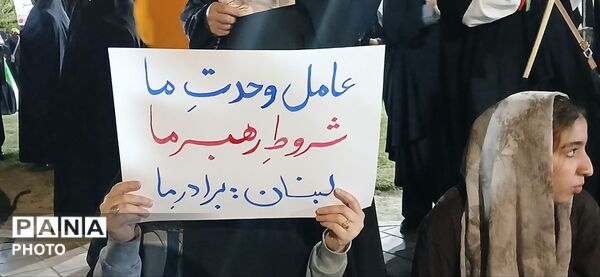 عامل وحدتِ ما
شروطِ رهبر ما
لبنان: برادر ما
PANA
PHOTO